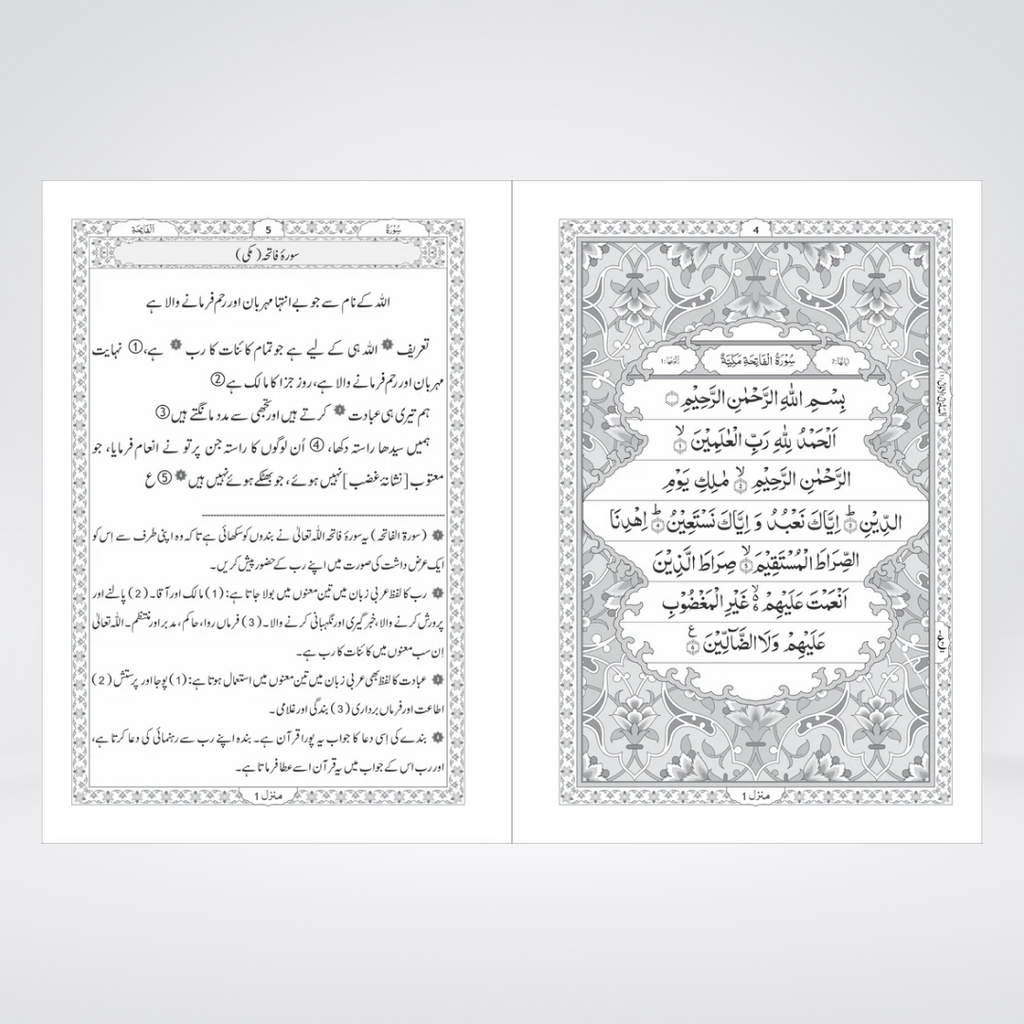 4
سُوْرَةُ الْفَاتِحَةِ مَكِّيَّةٌ
بِسْمِ اللّٰهِ الرَّحْمٰنِ الرَّحِيْمِ
اَلْحَمْدُ لِلّٰهِ رَبِّ الْعٰلَمِيْنَ ۙ ﴿1﴾
الرَّحْمٰنِ الرَّحِيْمِ ۙ ﴿2﴾ مٰلِكِ يَوْمِ
الدِّيْنِ ؕ ﴿3﴾ اِيَّاكَ نَعْبُدُ وَ اِيَّاكَ نَسْتَعِيْنُ ؕ ﴿4﴾ اِهْدِنَا
الصِّرَاطَ الْمُسْتَقِيْمَ ۙ ﴿5﴾ صِرَاطَ الَّذِيْنَ
اَنْعَمْتَ عَلَيْهِمْ ۙ۬ غَيْرِ الْمَغْضُوْبِ
عَلَيْهِمْ وَلَا الضَّآلِّيْنَ ﴿6﴾ ع
منزل 1
سُوْرَةُ 5 اَلْفَاتِحَةِ
سورۂ فاتحہ (مکی)
اللہ کے نام سے جو بے انتہا مہربان اور رحم فرمانے والا ہے
تعریف ۞ اللہ ہی کے لیے ہے جو تمام کائنات کا رب ۞ ہے، ① نہایت
مہربان اور رحم فرمانے والا ہے، روز جزا کا مالک ہے ②
ہم تیری ہی عبادت ۞ کرتے ہیں اور تجھی سے مدد مانگتے ہیں ③
ہمیں سیدھا راستہ دکھا، ④ اُن لوگوں کا راستہ جن پر تو نے انعام فرمایا، جو
معتوب [نشانۂ غضب] نہیں ہوئے، جو بھٹکے ہوئے نہیں ہیں ۞ ⑤ ع
۞ (سورۃ الفاتحہ) یہ سورۂ فاتحہ اللہ تعالیٰ نے بندوں کو سکھائی ہے تاکہ وہ اپنی طرف سے اِس کو
ایک عرض داشت کی صورت میں اپنے رب کے حضور پیش کریں۔
۞ رب کا لفظ عربی زبان میں تین معنوں میں بولا جاتا ہے: (1) مالک اور آقا۔ (2) پالنے اور
پرورش کرنے والا، خبر گیری اور نگہبانی کرنے والا۔ (3) فرماں روا، حاکم، مدبر اور منتظم۔ اللہ تعالیٰ
اِن سب معنوں میں کائنات کا رب ہے۔
۞ عبادت کا لفظ بھی عربی زبان میں تین معنوں میں استعمال ہوتا ہے: (1) پوجا اور پرستش (2)
اطاعت اور فرماں برداری (3) بندگی اور غلامی۔
۞ بندے کی اِسی دعا کا جواب یہ پورا قرآن ہے۔ بندہ اپنے رب سے رہنمائی کی دعا کرتا ہے،
اور رب اس کے جواب میں یہ قرآن اسے عطا فرماتا ہے۔
منزل 1